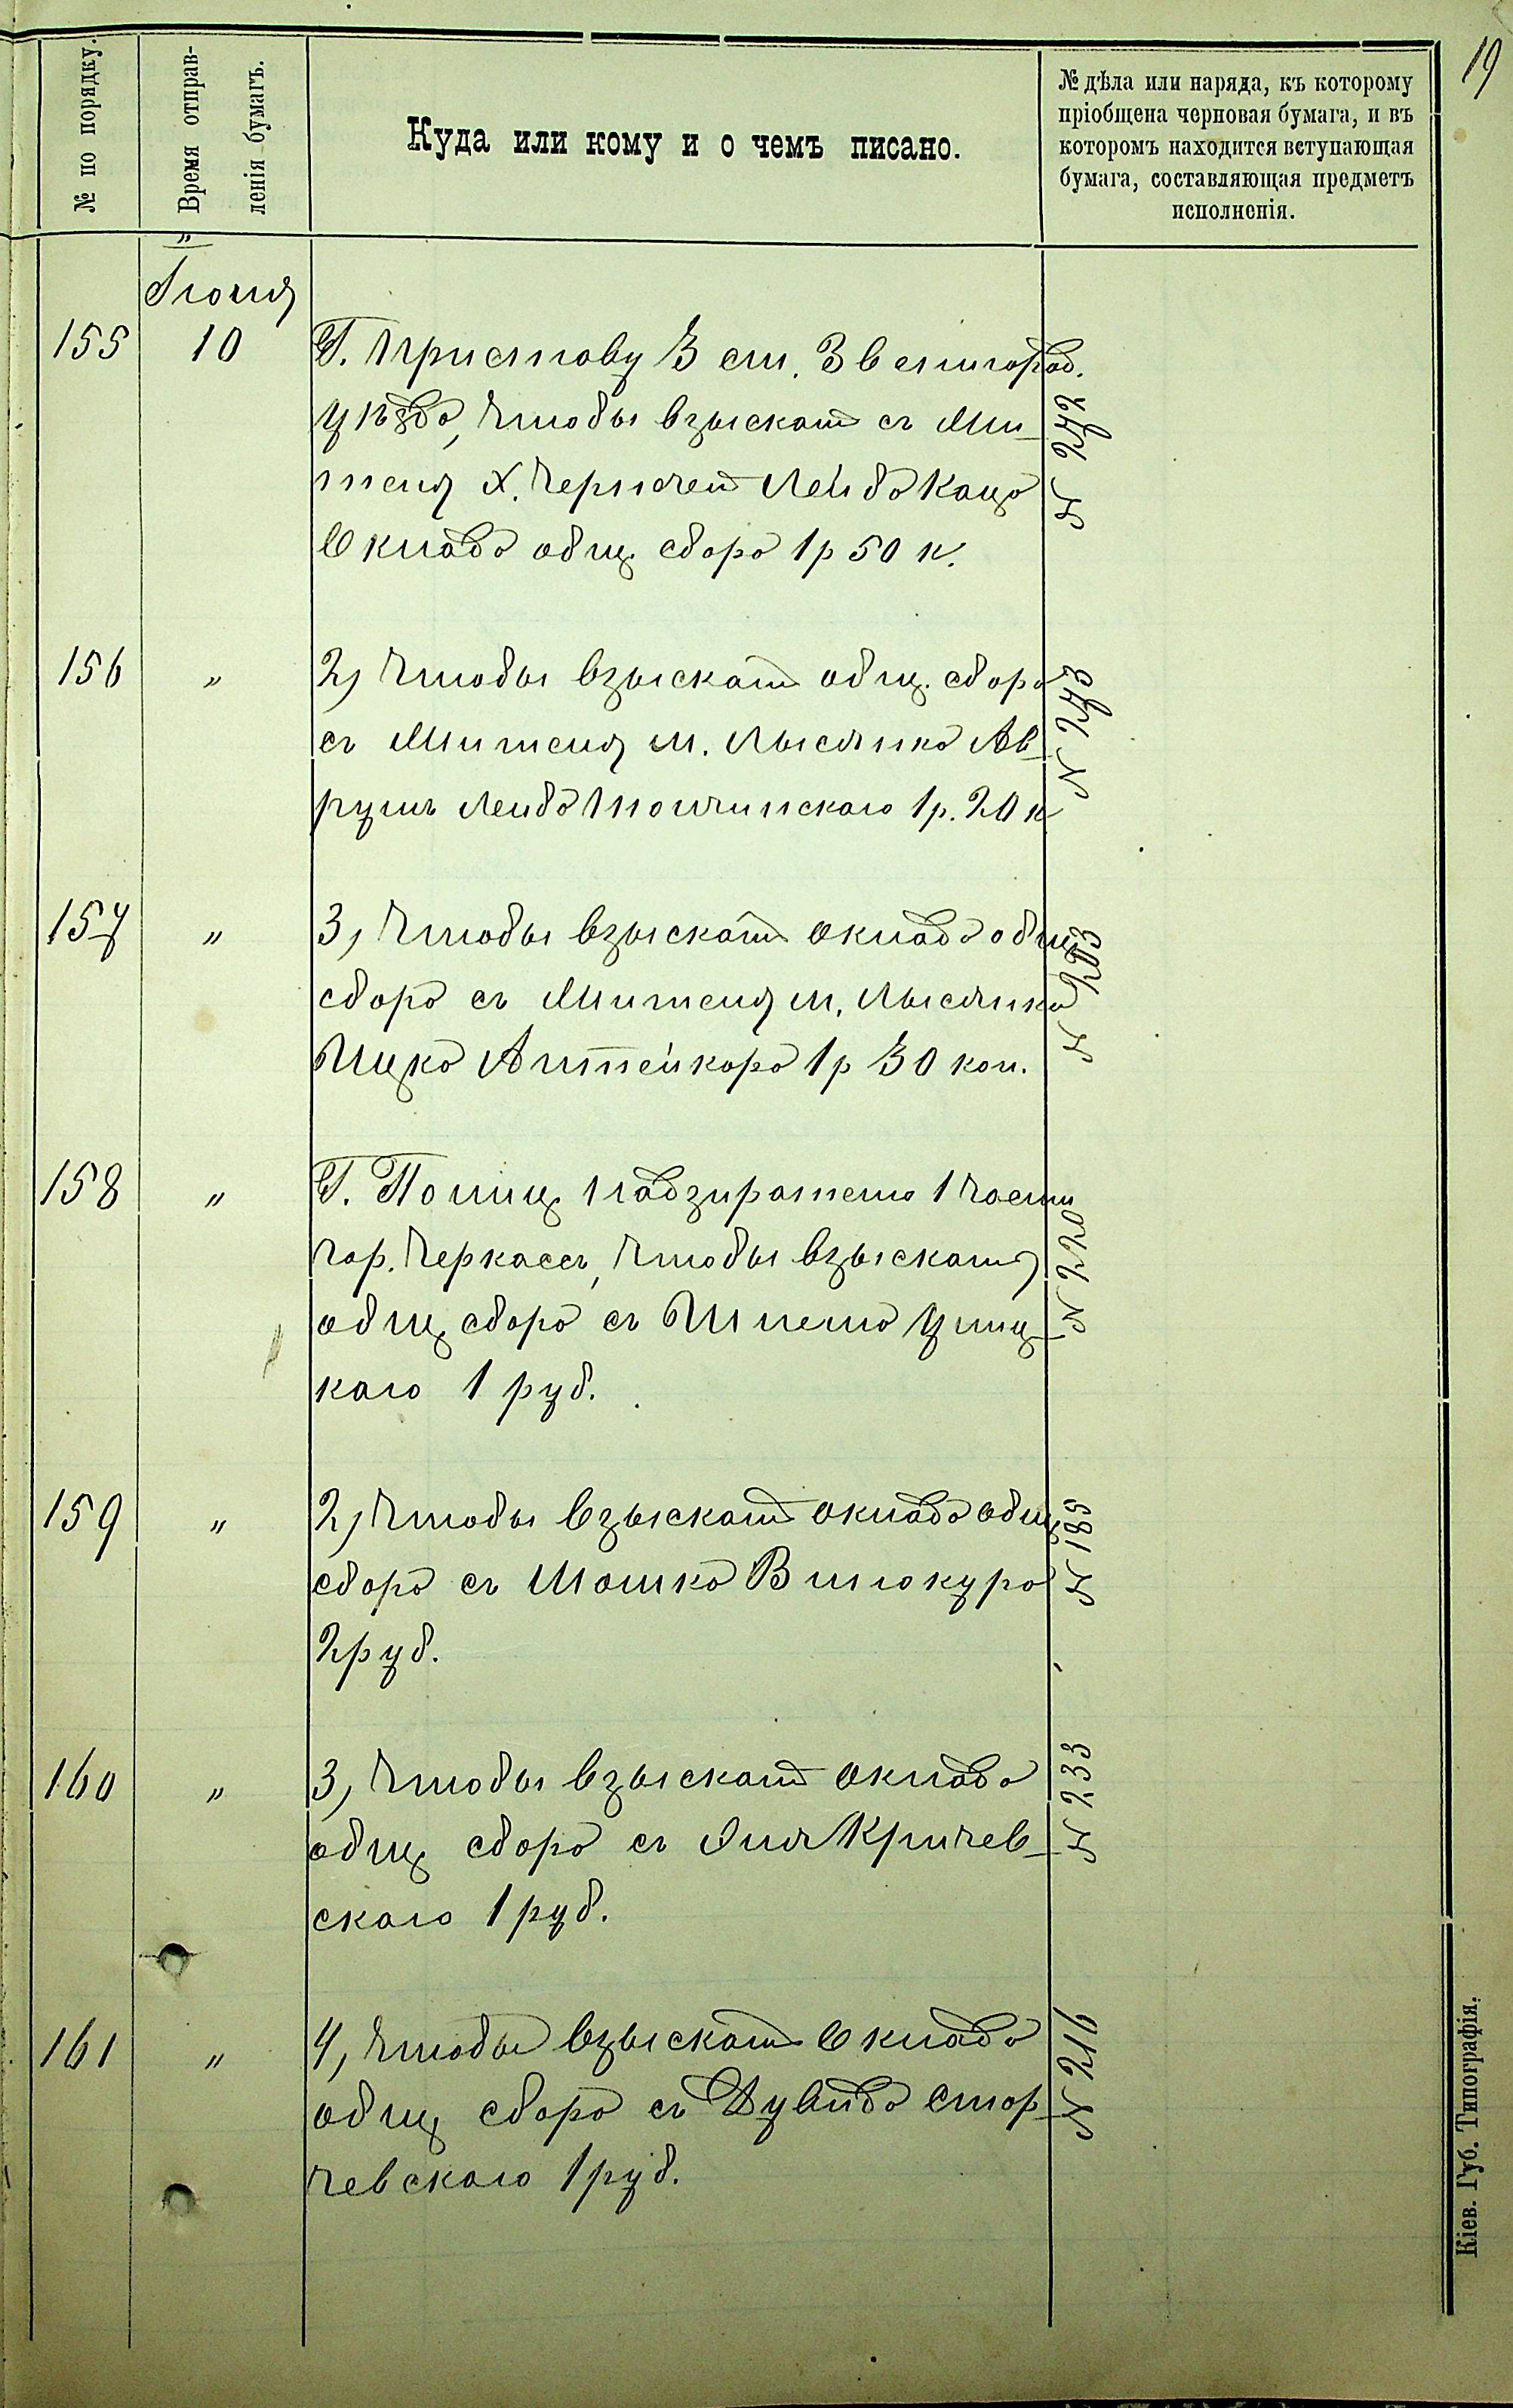 19
№ по порядку.
Время отправ-
ленія бумагъ.
Куда или кому и о чемъ писано.
№ дѣла или наряда, къ которому
пріобщена черновая бумага, и въ
которомъ находится вступающая
бумага, составляющая предметъ
исполненія.
Іюня
155 10 Г. Приставу 3 ст. Звенигород.
уѣзда, чтобы взыскать съ Жи-
теля х. Лейба Каца
оклада общ. сбора 1 р 50 к.
№ 272
156 " 2, чтобы взыскать общ. сбора
съ Жителя м. Лысянка Ав-
румъ Лейба 1 р. 20 к
№ 273
157 " 3, чтобы взыскать оклада общ
сбора съ Жителя м. Лысянка
Ицка Аптейкаря 1 р 30 коп.
№ 203
158 " Г. Полиц. надзирателю 1 части
гор. Черкассъ, чтобы взыскать
общ. сбора съ Шлемо
каго 1 руб.
№ 220
159 " 2, чтобы взыскать оклада общ
сбора съ Мошка Винокура
2 руб.
№ 185
160 " 3, чтобы взыскать оклада
общ сбора съ Кричев-
скаго 1 руб.
№ 233
161 " 4, чтобы взыскать оклада
общ сбора съ Дувида Стор-
чевскаго 1 руб.
№ 216
Кіев. Губ. Типографія.